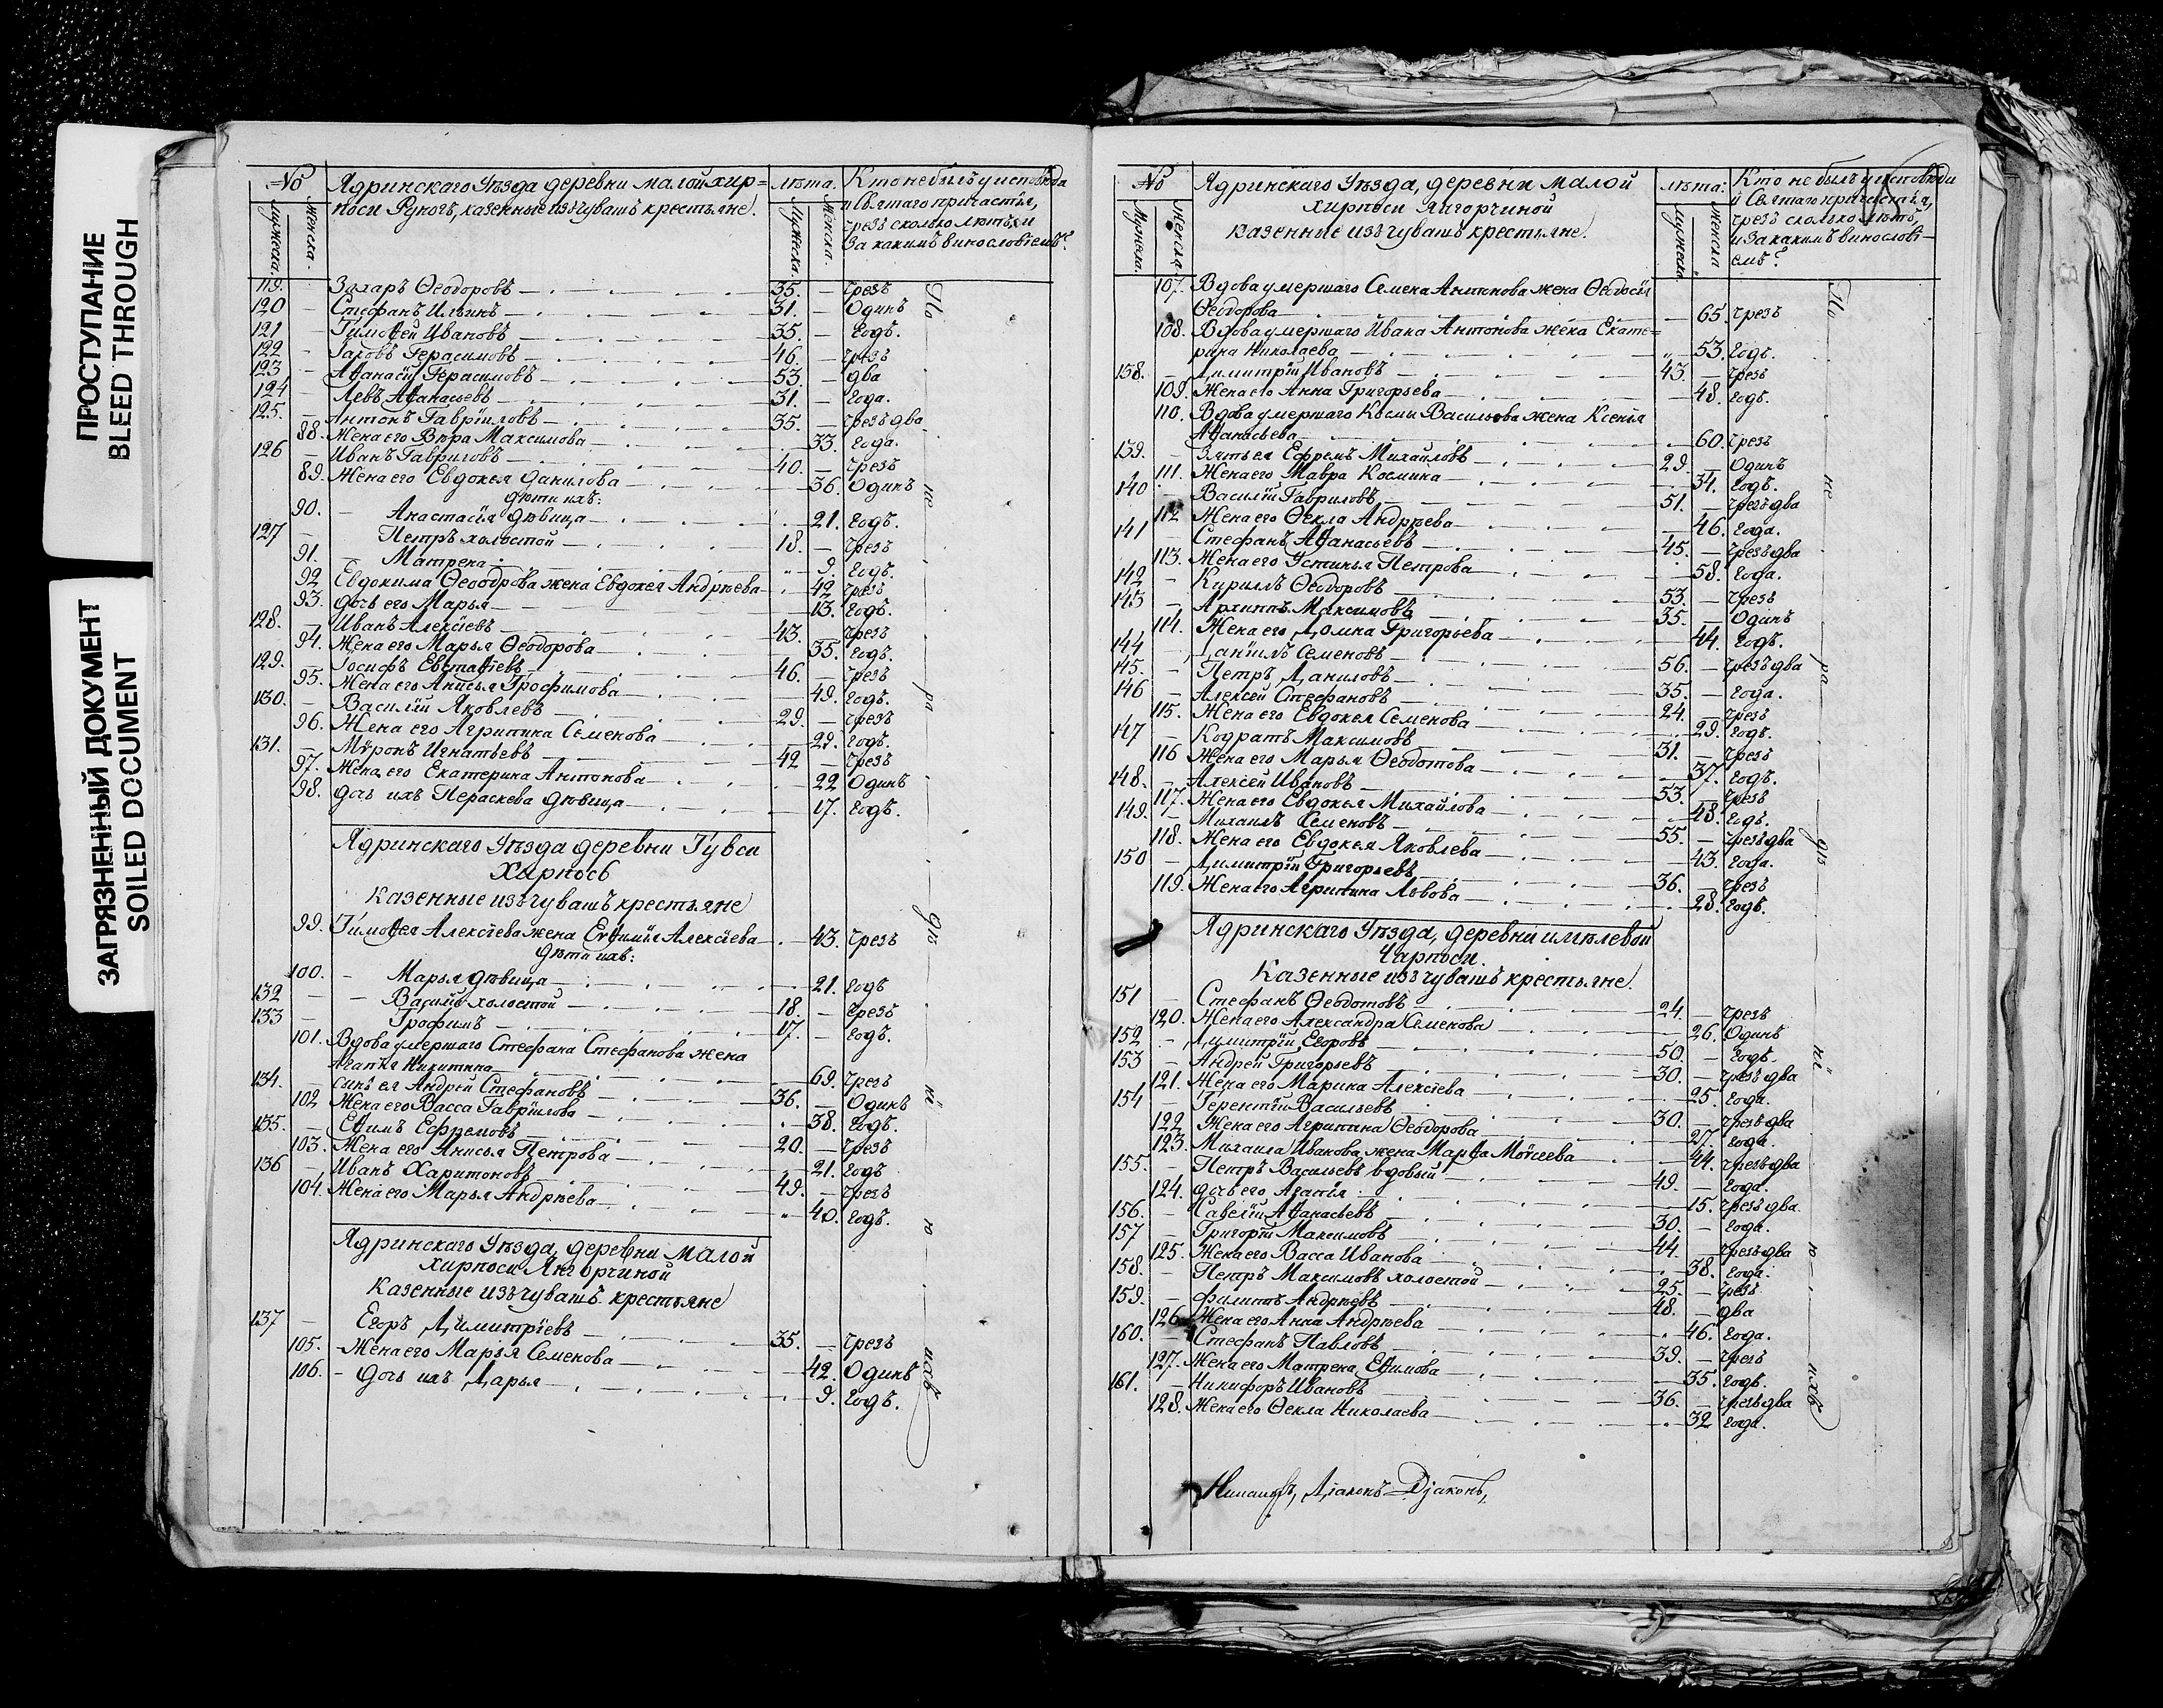 ПРОСТУПАНИЕ
BLEED THROUGH
ЗАГРЯЗНЕННЫЙ ДОКУМЕНТ
SOILED DOCUMENT
№ Ядринскаго Уѣзда деревни малой хир= лѣта. Кто не былъ у исповѣди
носи Руногъ, казенные изъ чувашъ крестьяне. и святаго причастья,
чрезъ сколько лѣтъ, и
за какимъ винословіемъ?
Мужеска. Женска. Мужеска. Женска.
119. Захаръ Ѳеодоровъ 35. чрезъ
120 Стефанъ Ильинъ 31. Одинъ
121 Тимоѳей Ивановъ 35. годъ.
122 Іаковъ Герасимовъ 46. чрезъ
123 Аѳанасій Герасимовъ 53. два
124 Левъ Аѳанасьевъ 31. года.
125. Антонъ Гавріиловъ 35. чрезъ два
88. Жена его Вѣра Максимова 33. года.
126 Иванъ Гавриловъ 40. чрезъ
89. Жена его Евдокея Данилова 36. Одинъ
дѣти ихъ:
90. Анастасія дѣвица 21. годъ.
127 Петръ холостой 18. чрезъ
91. Матрена 9. годъ.
92 Евдокима Ѳеодорова жена Евдокея Андрѣева 42 чрезъ
93. дочь его Марья 13. годъ.
128. Иванъ Алексіевъ 43. чрезъ
94. Жена его Марья Ѳеодорова 35. годъ.
129. Іосифъ Евстаѳіевъ 46. чрезъ
95. Жена его Анисья Трофимова 49. годъ.
130. Василій Яковлевъ 29. чрезъ
96. Жена его Агрипина Семенова 29. годъ.
131. Мѵронъ Игнатьевъ 42 чрезъ
97. Жена его Екатерина Антонова 22 Одинъ
98. дочь ихъ Пераскева дѣвица 17. годъ.
Ядринскаго Уѣзда деревни Тувси
Хирпось
казенные изъ чувашъ крестьяне
99. Тимоѳея Алексіева жена Евѳимія Алексіева 43. чрезъ
дѣти ихъ:
100. Марья дѣвица 21. годъ
132 Василій холостой 18. чрезъ
133 Трофимъ 17. годъ.
101. Вдова умершаго Стефана Стефанова жена
Агапія Никитина 69. чрезъ
134. Сынъ ея Андрей Стефановъ 36. Одинъ
102 Жена его Васса Гавріилова 38. годъ.
135. Еѳимъ Ефремовъ 20. чрезъ
103. Жена его Анисья Петрова 21. годъ
136 Иванъ Харитоновъ 49. чрезъ
104. Жена его Марья Андрѣева 40. годъ.
Ядринскаго Уѣзда, деревни малой
хирпоси Янгорчиной
Казенные изъ чувашъ крестьяне
137 Егоръ Димитріевъ 35. чрезъ
105. Жена его Марья Семенова 42. Одинъ
106. дочь ихъ Дарья 9. годъ.
По не ра дѣ ні ю ихъ
№ Ядринскаго Уѣзда, деревни малой лѣта: Кто не былъ у исповѣди
хирпоси Янгорчиной и святаго причастья,
казенные изъ чувашъ крестьяне. чрезъ сколько лѣтъ,
и за какимъ винослові-
емъ?
Мужеска. Женска. Мужеска Женска
107. Вдова умершаго Семена Антонова жена Ѳеодосія
Ѳеодорова 65. чрезъ
108. Вдова умершаго Ивана Антонова жена Екате=
рина Николаева 53. годъ.
138. Димитрій Ивановъ 43. чрезъ
109. Жена его Анна Григорьева 48. годъ.
110. Вдова умершаго Косми Васильева жена Ксенія
Аѳанасьева 60. чрезъ
139. Зять ея Ефремъ Михайловъ 29. Одинъ
111. Жена его Мавра Космина 34. годъ.
140 Василій Гавриловъ 51. чрезъ два
112 Жена его Ѳекла Андрѣева 46. года.
141 Стефанъ Аѳанасьевъ 45. чрезъ два
113. Жена его Устинья Петрова 58. года.
142 Кириллъ Ѳеодоровъ 53. чрезъ
143 Архиппъ Максимовъ 35. Одинъ
114. Жена его Домна Григорьева 44. годъ.
144 Даніилъ Семеновъ 56. чрезъ два
145. Петръ Даниловъ 35. года.
146 Алексей Стефановъ 24. чрезъ
115. Жена его Евдокея Семенова 29. годъ.
147 Кодратъ Максимовъ 31. чрезъ
116 Жена его Марья Ѳеодотова 37. годъ.
148. Алексей Ивановъ 53. чрезъ
117. Жена его Евдокея Михайлова 48. годъ.
149. Михаилъ Семеновъ 55. чрезъ два
118. Жена его Евдокея Яковлева 43. года.
150 Димитрій Григорьевъ 36. чрезъ
119. Жена его Агрипина Львова 28. годъ.
Ядринскаго Уѣзда, деревни
Чарпоси.
Казенные изъ чувашъ крестьяне.
151 Стефанъ Ѳеодотовъ 24. чрезъ
120. Жена его Александра Семенова 26. Одинъ
152 Димитрій Егоровъ 50. годъ.
153 Андрей Григорьевъ 30. чрезъ два
121. Жена его Марина Алексіева 25. года.
154 Терентій Васильевъ 30. чрезъ два
122 Жена его Агрипина Ѳеодорова 27. года.
123. Михаила Иванова жена Марѳа Мойсеева 44. чрезъ два
155. Петръ Васильевъ вдовый 49. года.
124. дочь его Агапія 15. чрезъ два
156. Савелій Аѳанасьевъ 30. года.
157 Григорій Максимовъ 44. чрезъ два
125. Жена его Васса Иванова 38. года.
158. Петръ Максимовъ холостой 25. чрезъ
159. Филиппъ Андрѣевъ 48. два
126 Жена его Анна Андрѣева 46. года.
160. Стефанъ Павловъ 39. чрезъ
127. Жена его Матрена Еѳимова 35. годъ.
161. Никифоръ Ивановъ 36. чрезъ два
128. Жена его Ѳекла Николаева 32 года.
По не ра дѣ ні ю ихъ